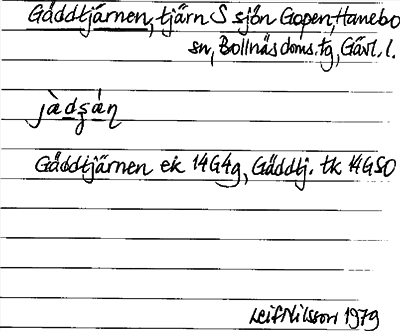 Gäddtjärnen, tjärn S sjön Gopen, Hanebo
sn, Bollnäs doms. tg, Gävl. l.
Gäddtjärnen ek 14G4g, Gäddtj. tk 14GSO
Leif Nilsson 1979